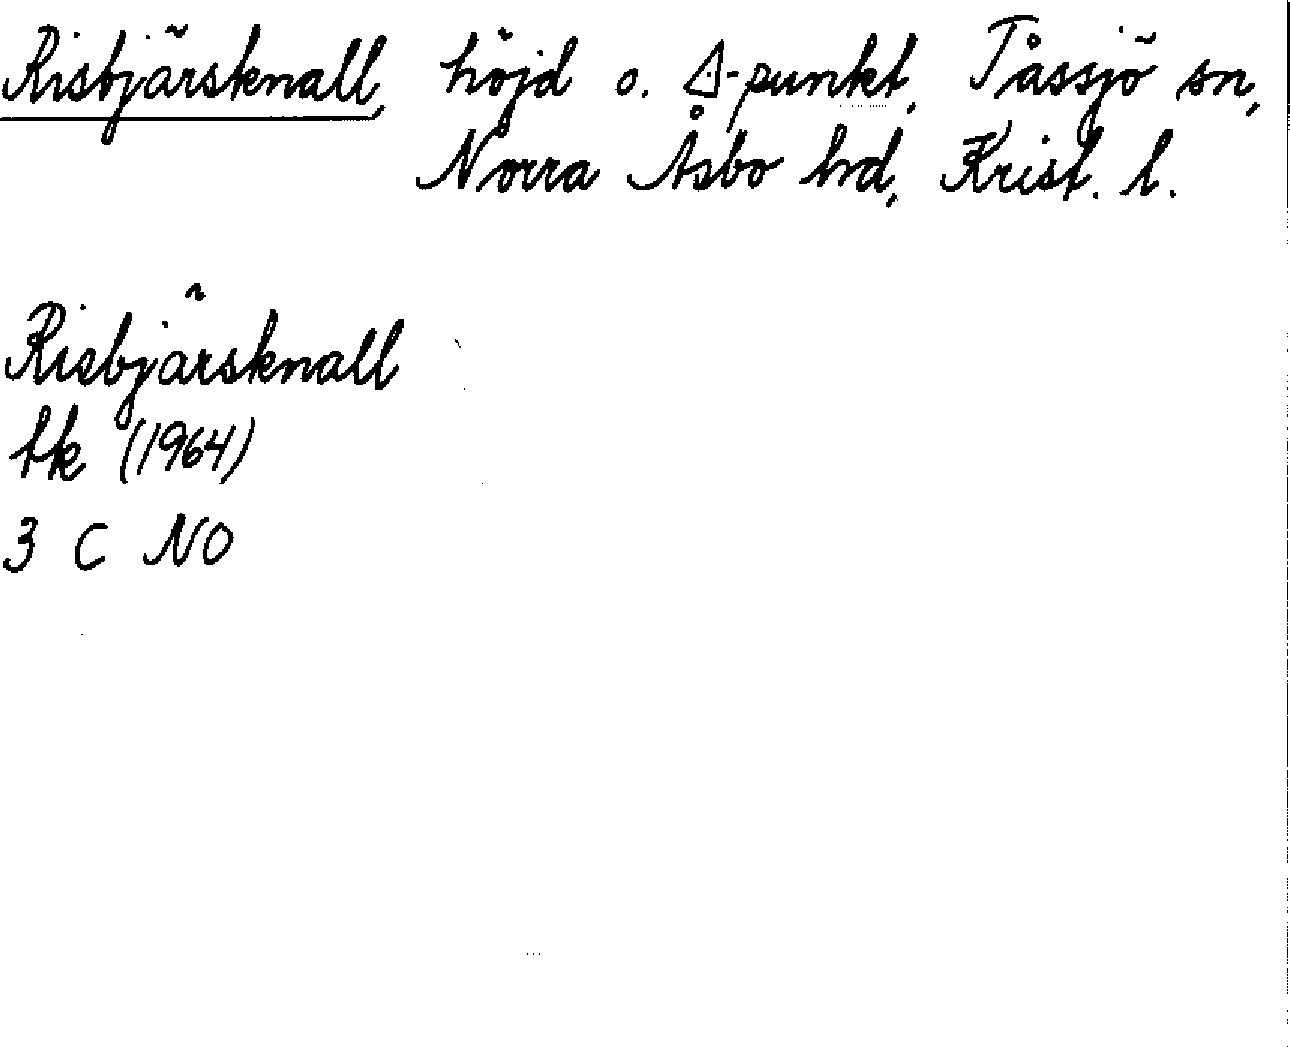 Risbjärsknall, höjd o. △-punkt, Tåssjö sn,
Norra Åsbo hd, Krist. l.
Risbjärsknall
tk (1964)
3 C NO